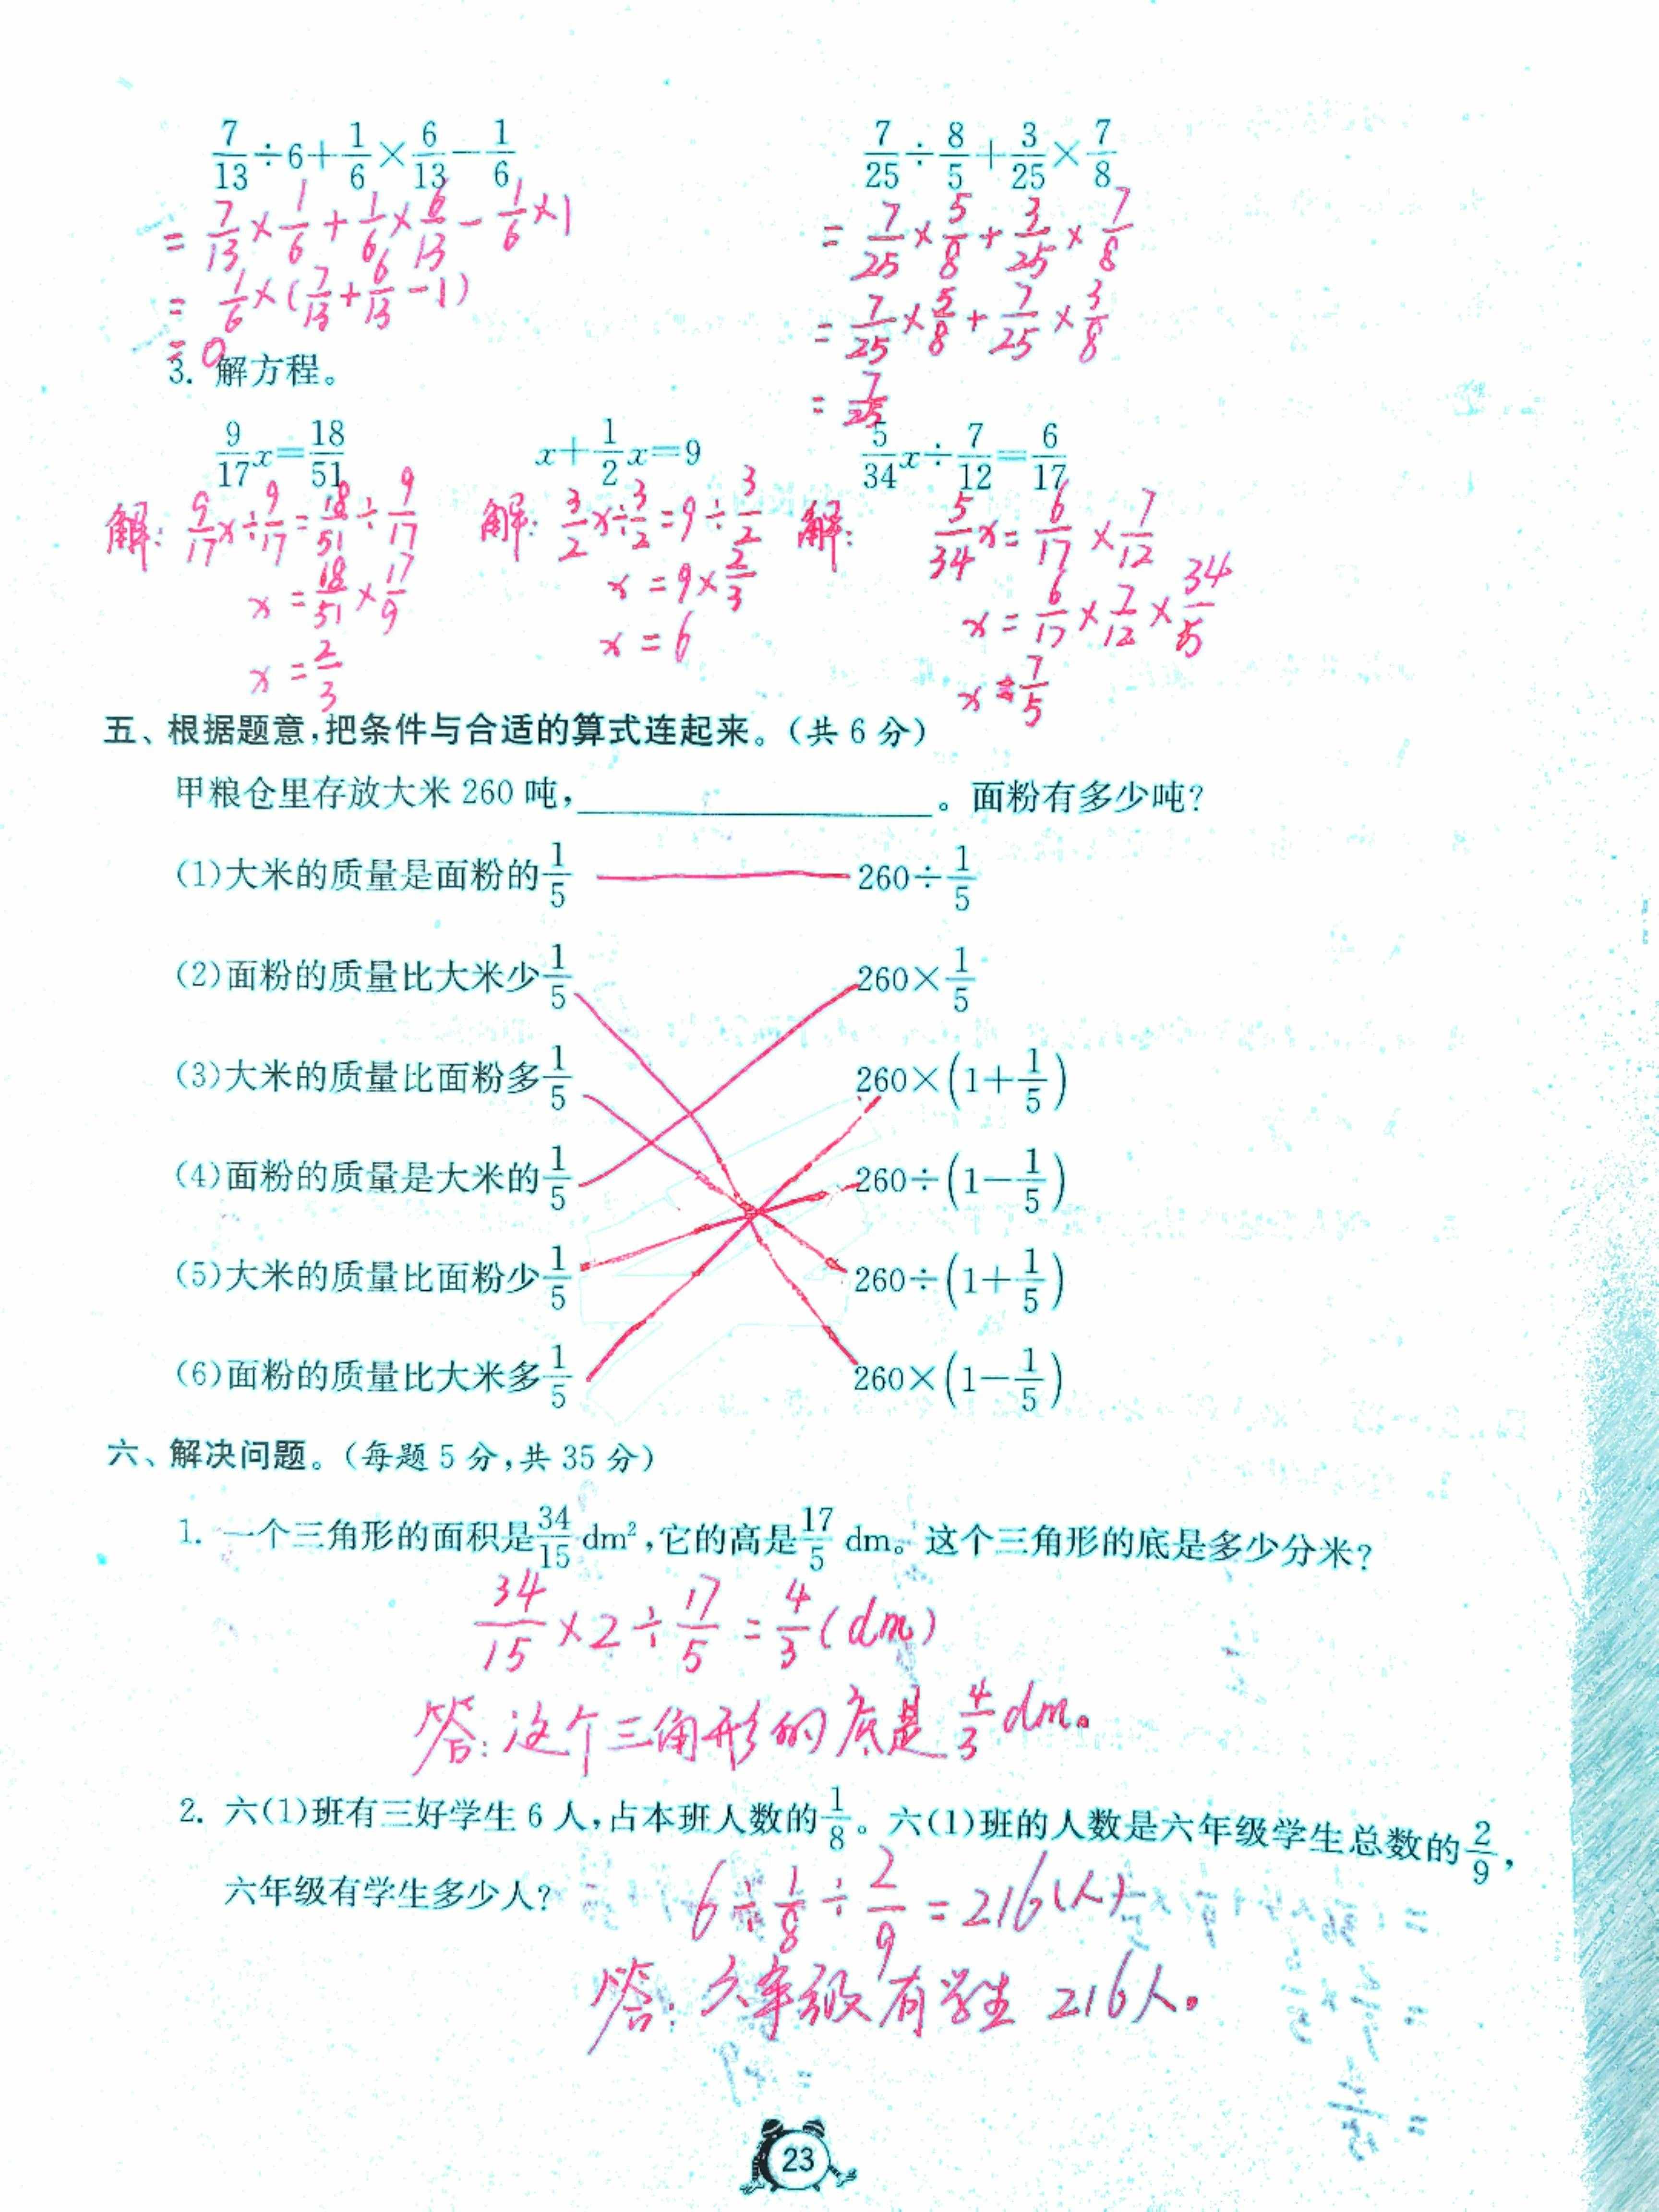 7/13÷6+1/6×6/13−1/6
=7/13×1/6+1/6×6/13−1/6×1
=1/6×(7/13+6/13−1)
=0
7/25÷8/5+3/25×7/8
=7/25×5/8+3/25×7/8
=7/25×5/8+7/25×3/8
=7/25
3. 解方程。
9/17x=18/51
解: 9/17x÷9/17=18/51÷9/17
x=18/51×17/9
x=2/3
x+1/2x=9
解: 3/2x÷3/2=9÷3/2
x=9×2/3
x=6
5/34x÷7/12=6/17
解: 5/34x=6/17×7/12
x=6/17×7/12×34/5
x=7/5
五、根据题意,把条件与合适的算式连起来。(共 6 分)
甲粮仓里存放大米 260 吨,____________。面粉有多少吨?
(1)大米的质量是面粉的1/5 260÷1/5
(2)面粉的质量比大米少1/5 260×1/5
(3)大米的质量比面粉多1/5 260×(1+1/5)
(4)面粉的质量是大米的1/5 260÷(1−1/5)
(5)大米的质量比面粉少1/5 260÷(1+1/5)
(6)面粉的质量比大米多1/5 260×(1−1/5)
六、解决问题。(每题 5 分,共 35 分)
1. 一个三角形的面积是34/15 dm²,它的高是17/5 dm。这个三角形的底是多少分米?
34/15×2÷17/5=4/3(dm)
答:这个三角形的底是4/3dm。
2. 六(1)班有三好学生 6 人,占本班人数的1/8。六(1)班的人数是六年级学生总数的2/9,
六年级有学生多少人?
6÷1/8÷2/9=216(人)
答:六年级有学生 216人。
23